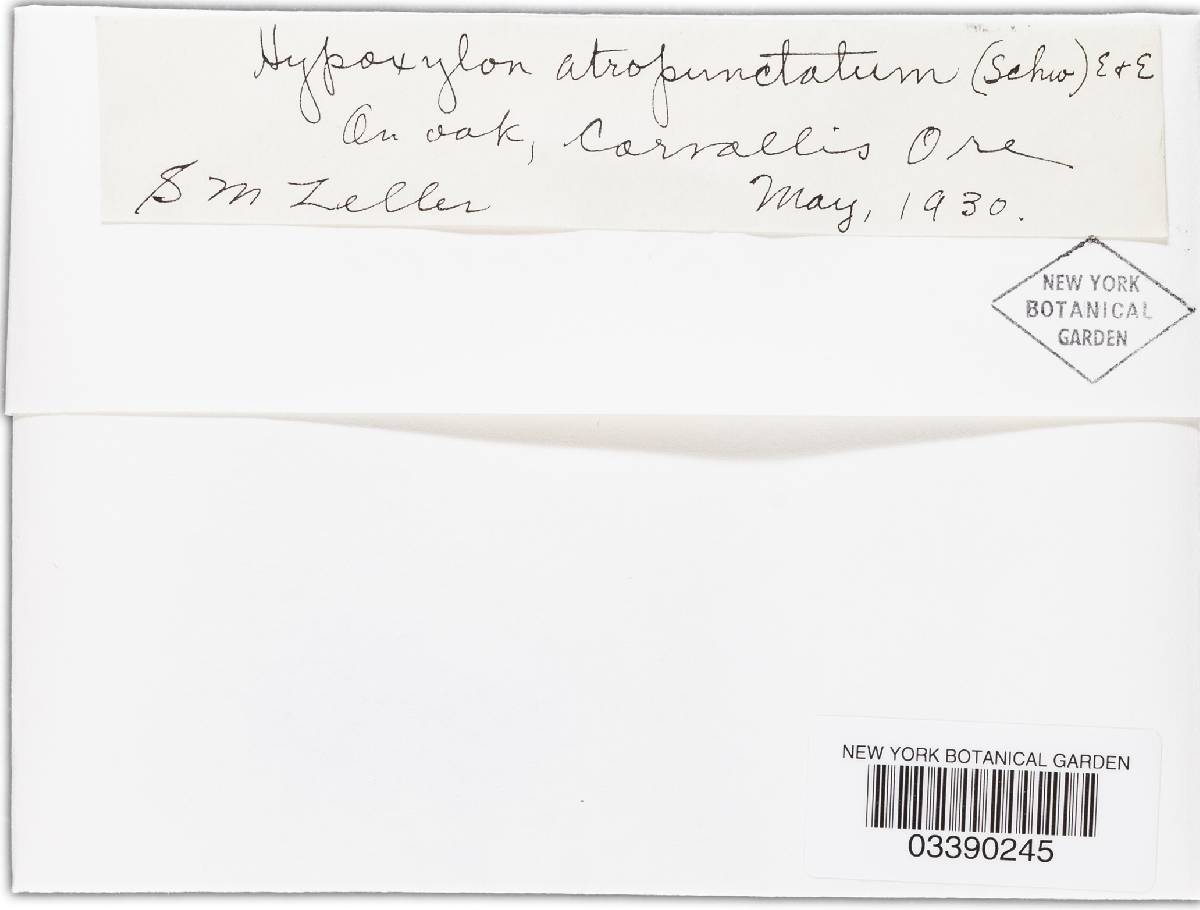 Hypoxylon atropunctatum (Schw) E & E
On oak, Corvallis Ore
S M Zeller May, 1930.
NEW YORK
BOTANICAL
GARDEN
NEW YORK BOTANICAL GARDEN
03390245